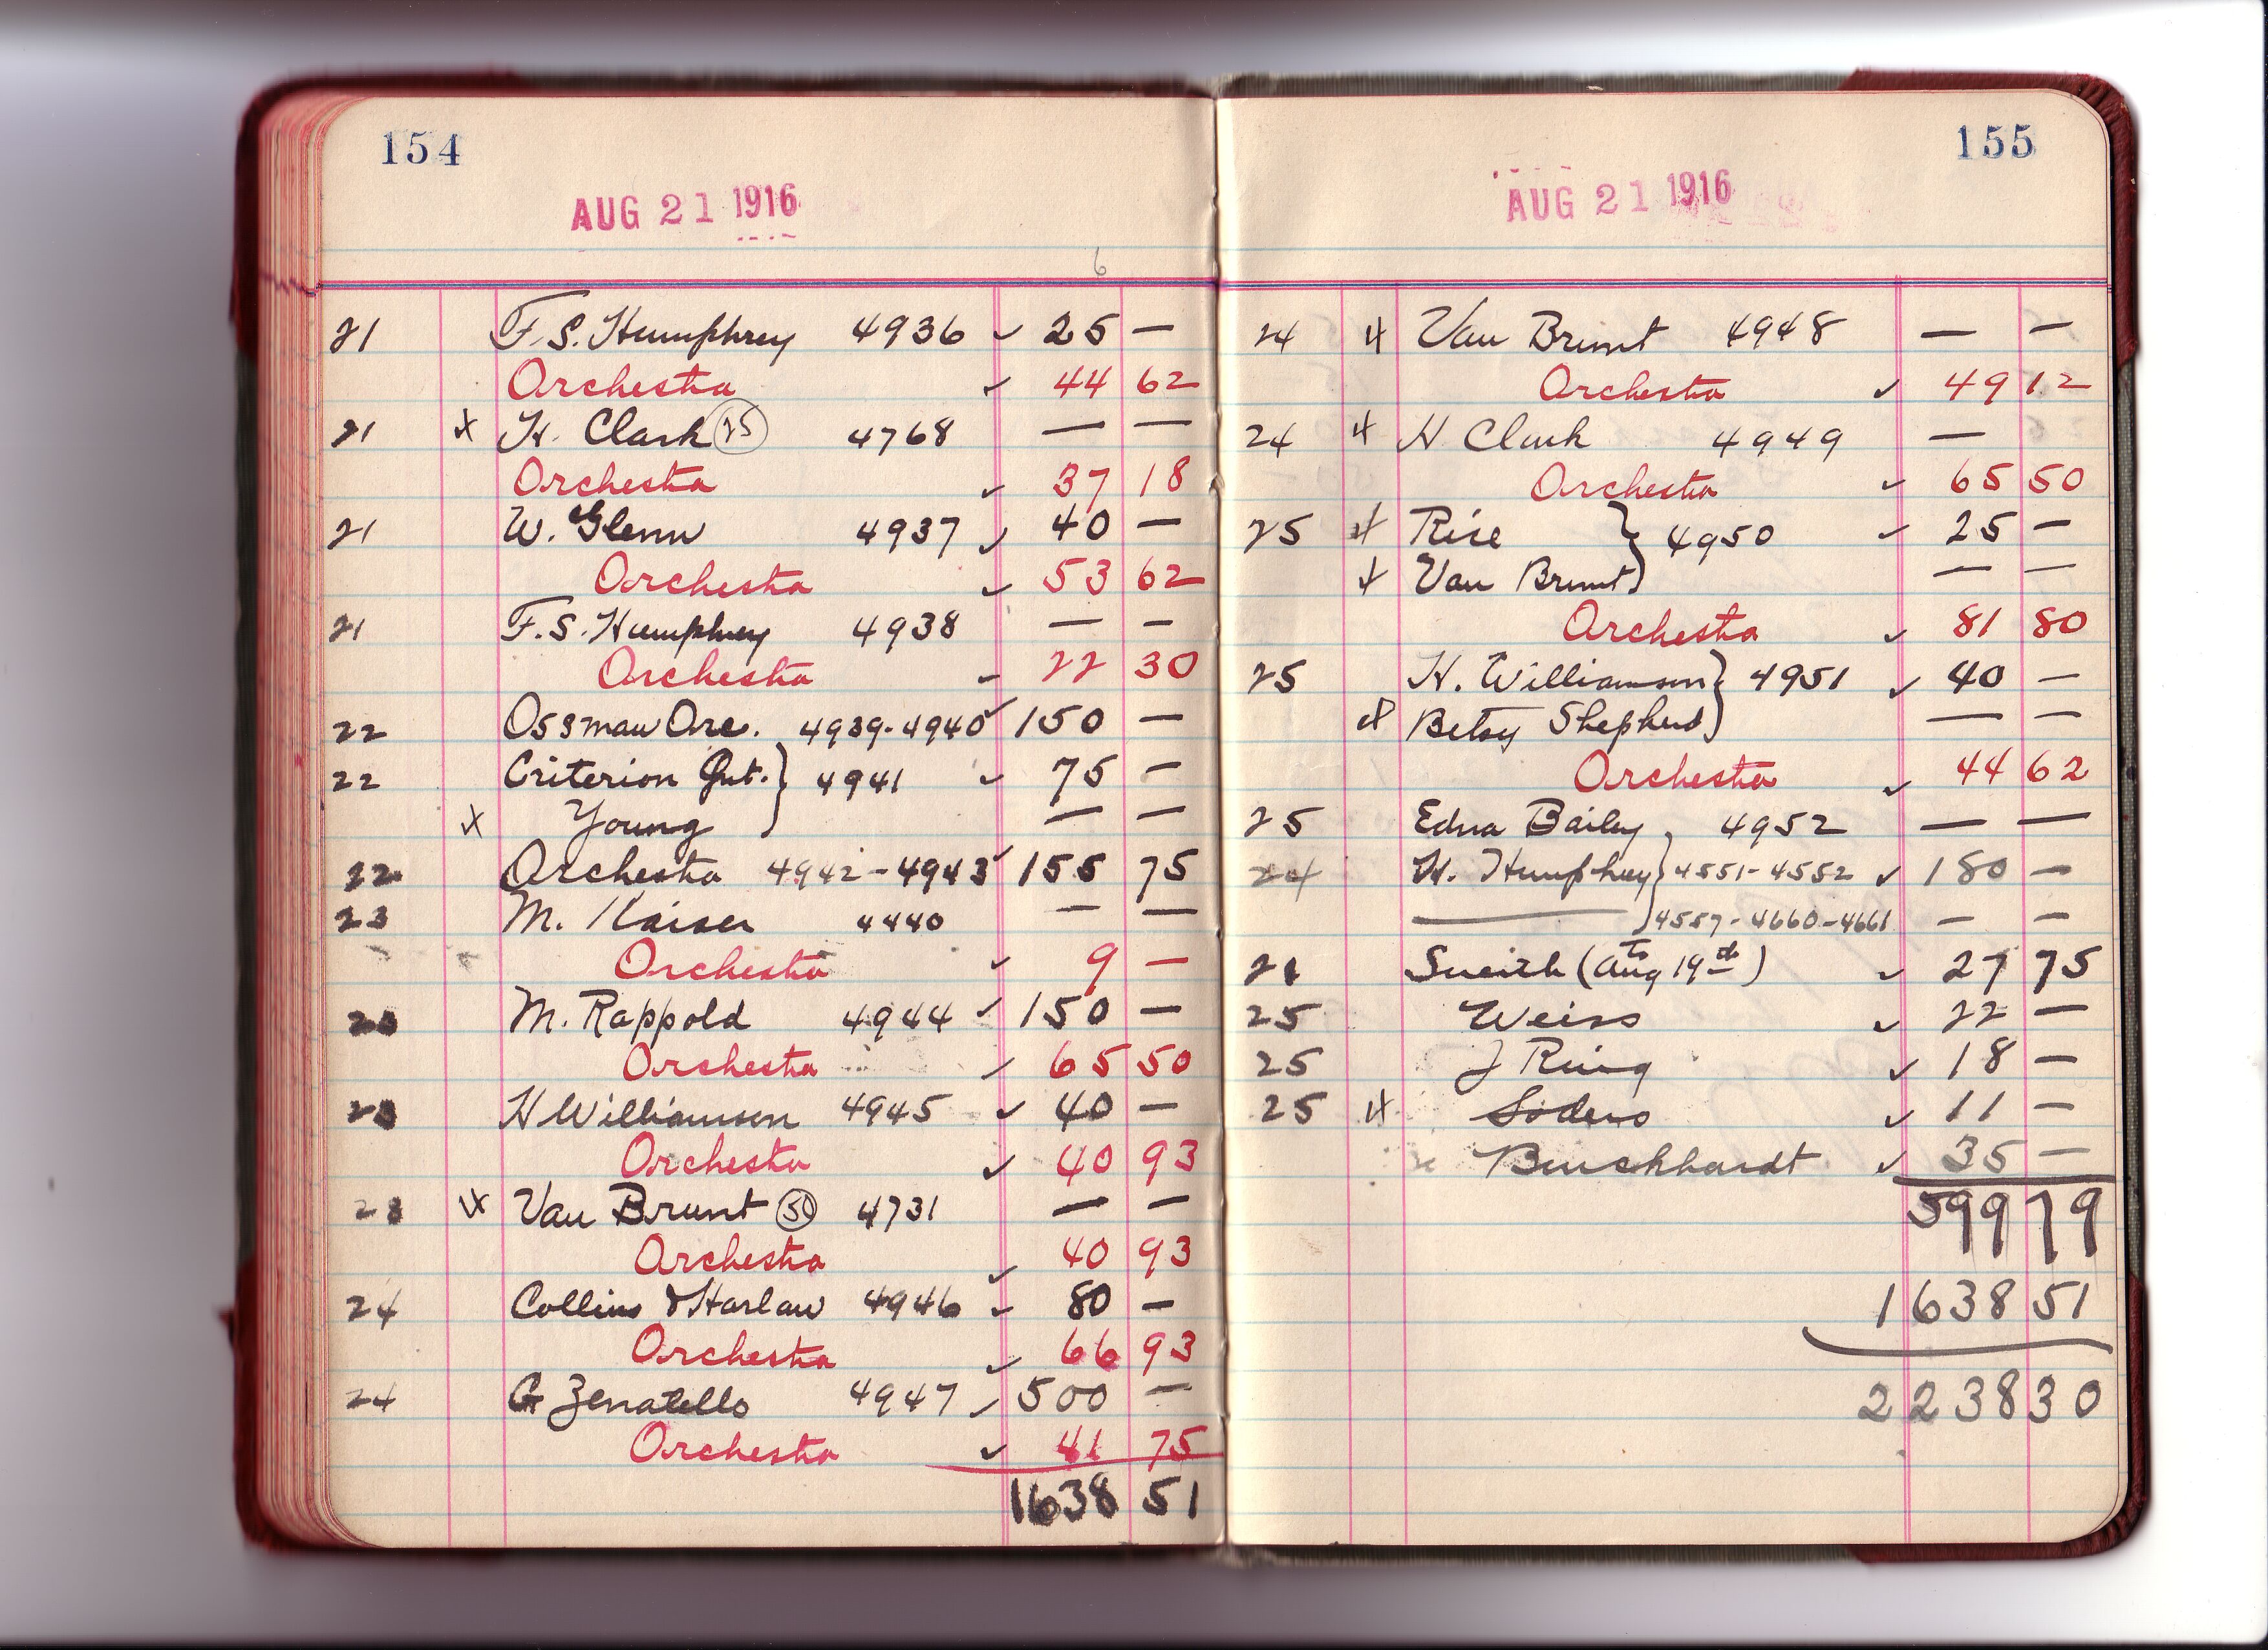 154
AUG 21 1916
6
21 F. S. Humphrey 4936 ✓ 25 —
Orchestra ✓ 44 62
21 x H. Clark (25) 4768 — —
Orchestra ✓ 37 18
21 W. Glenn 4937 ✓ 40 —
Orchestra ✓ 53 62
21 F. S. Humphrey 4938 — —
Orchestra ✓ 22 30
22 Ossman Orc. 4939-4940 ✓ 150 —
22 Criterion Qut. } 4941 ✓ 75 —
x Young } — —
22 Orchestra 4942-4943 ✓ 155 75
23 M. Kaiser 4440 — —
Orchestra ✓ 9 —
23 M. Rappold 4944 ✓ 150 —
Orchestra ✓ 65 50
23 H Williamson 4945 ✓ 40 —
Orchestra ✓ 40 93
23 x Van Brunt (50) 4731 — —
Orchestra ✓ 40 93
24 Collins & Harlan 4946 ✓ 80 —
Orchestra ✓ 66 93
24 G Zenatello 4947 ✓ 500 —
Orchestra ✓ 41 75
1638 51
155
AUG 21 1916
24 x Van Brunt 4948 — —
Orchestra ✓ 49 12
24 x H Clark 4949 —
Orchestra ✓ 65 50
25 x Rice } 4950 ✓ 25 —
x Van Brunt } — —
Orchestra ✓ 81 80
25 H. Williamson } 4951 ✓ 40 —
x Betsy Shepherd } — —
Orchestra ✓ 44 62
25 Edna Bailey, 4952 — —
24 H. Humphrey } 4551-4552 ✓ 180 —
——— } 4557-4660-4661 — —
21 (Aug 19th) ✓ 27 75
25 Weiss ✓ 22 —
25 J Ring ✓ 18 —
25 x Soders ✓ 11 —
Burckhardt ✓ 35 —
599 79
1638 51
2238 30